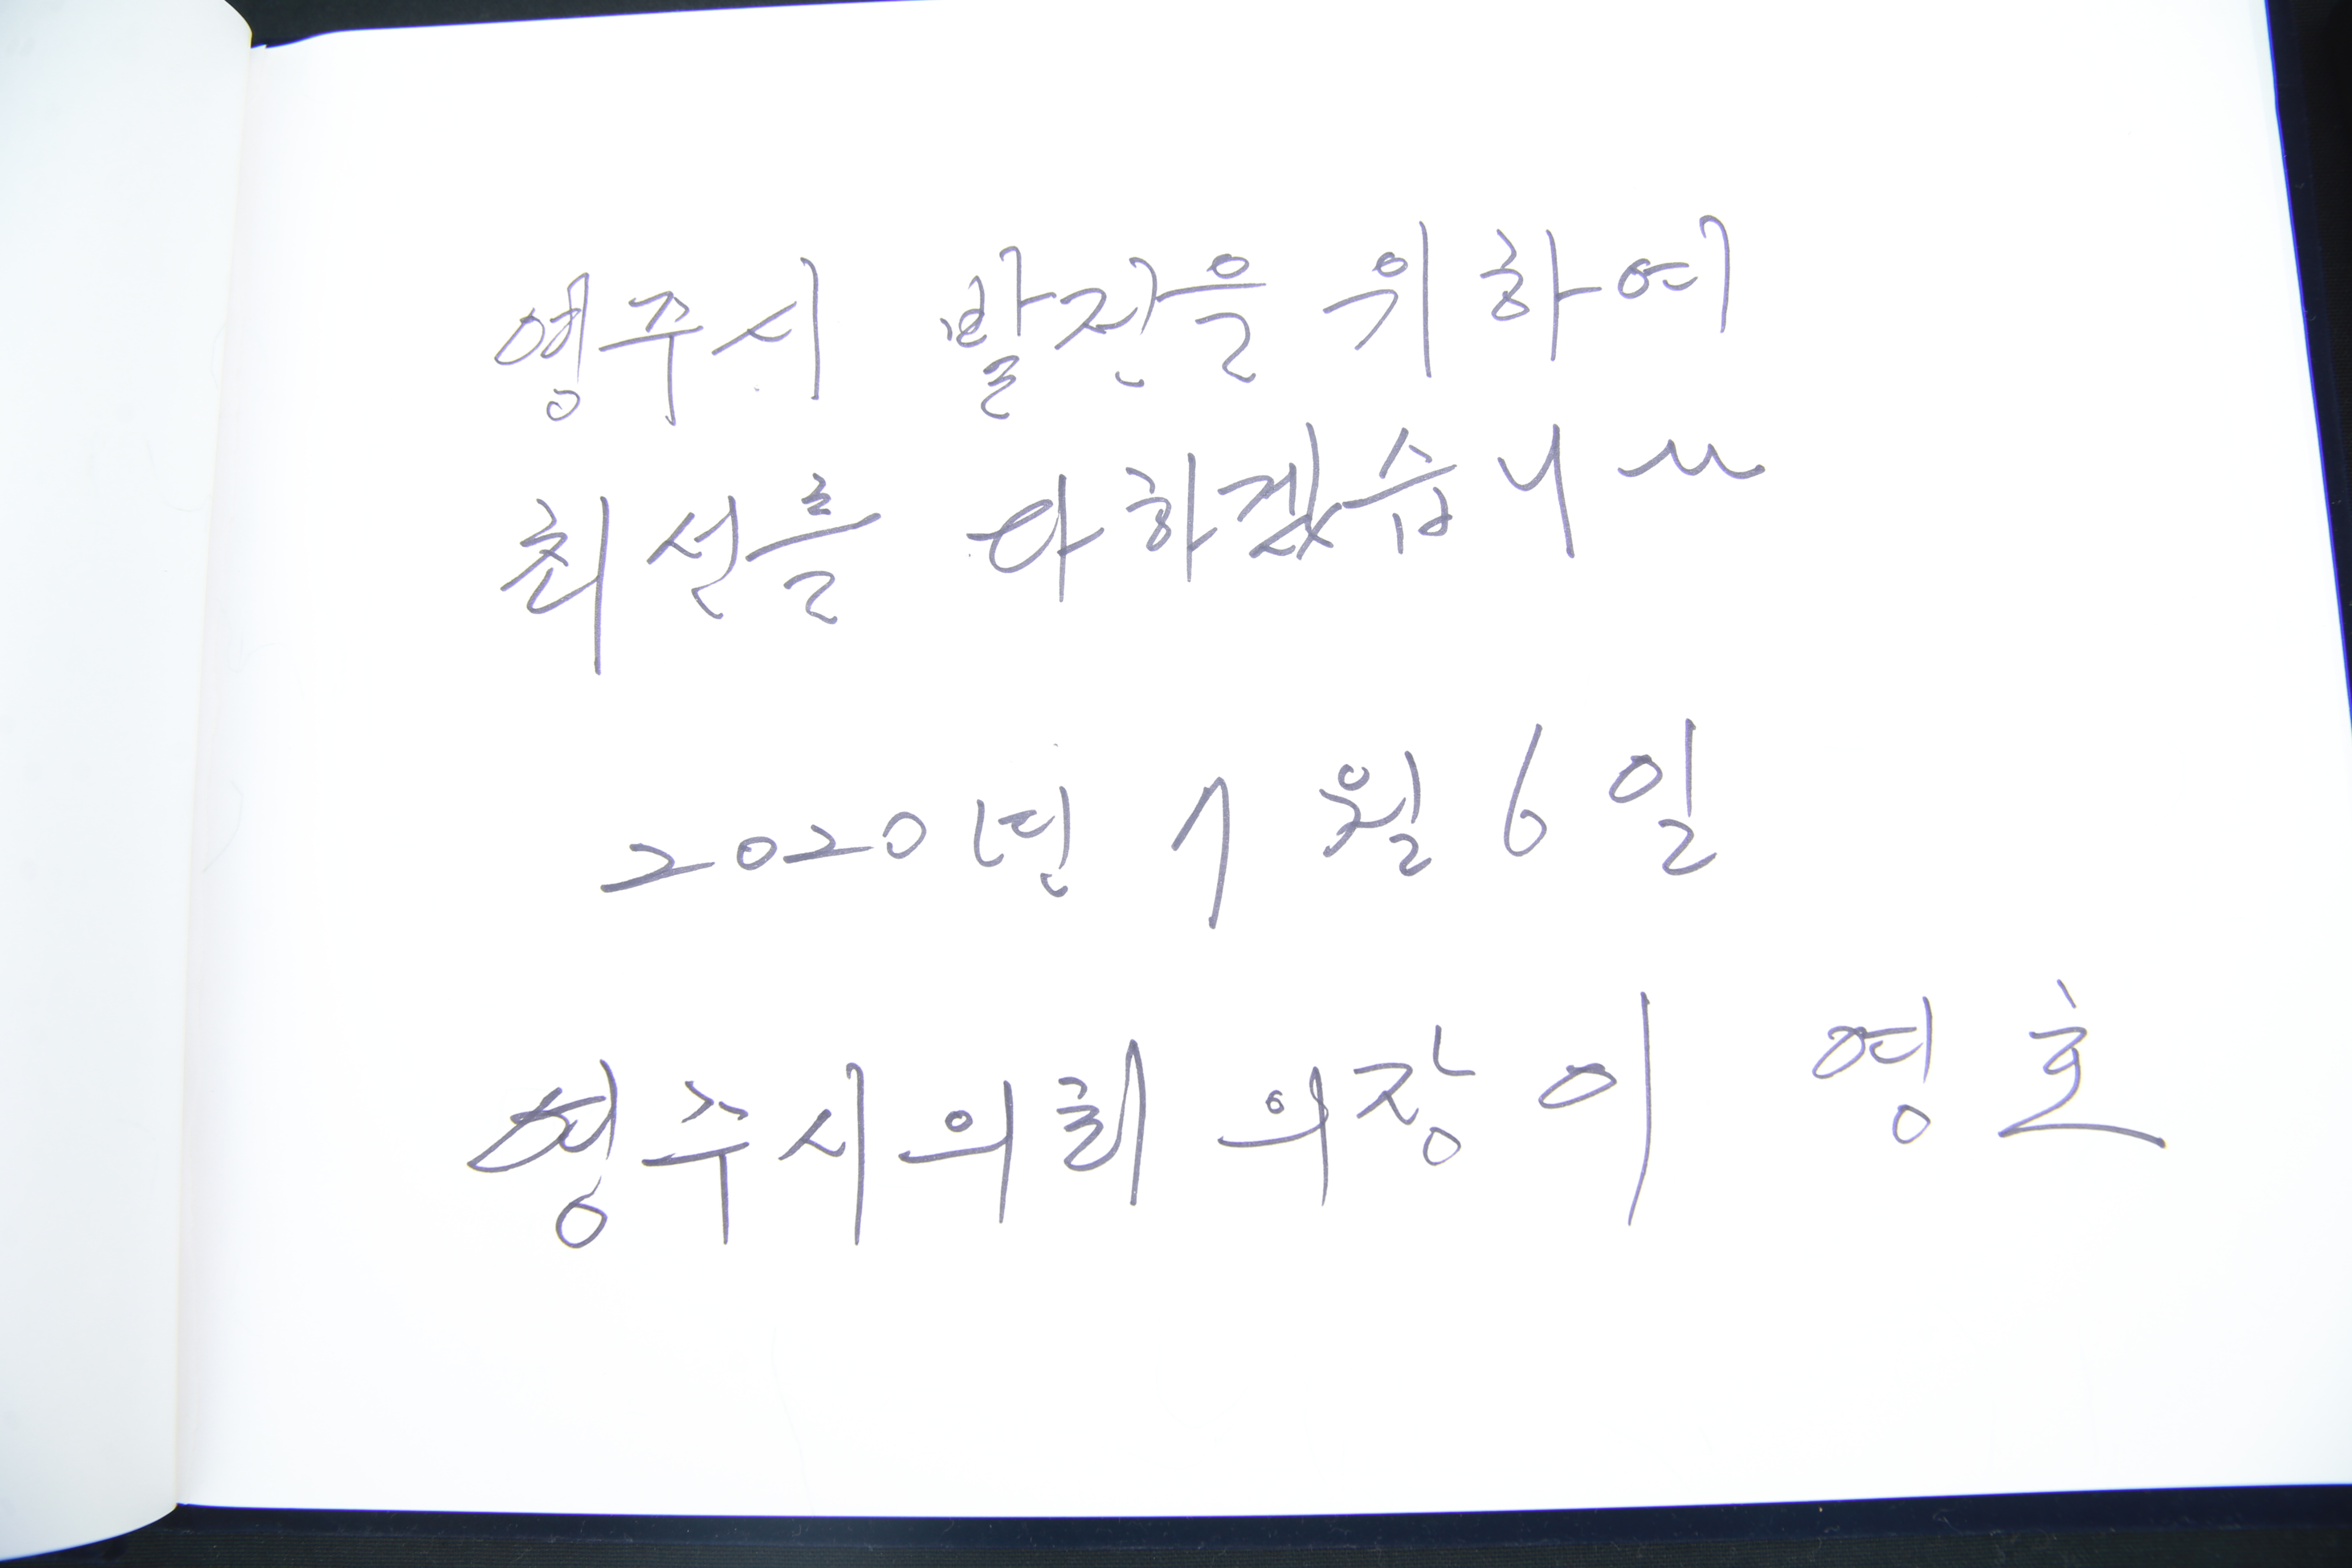 영주시 발전을 위하여
최선을 다하겠습니다
2020년 7월 6일
영주시의회 의장 이 영호